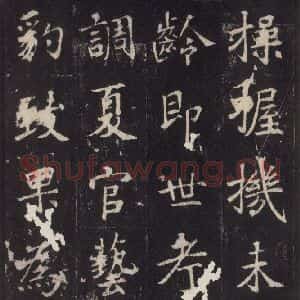 操握機未
齡即世考
調夏官藝
豹致果為
Shufawang.Cn